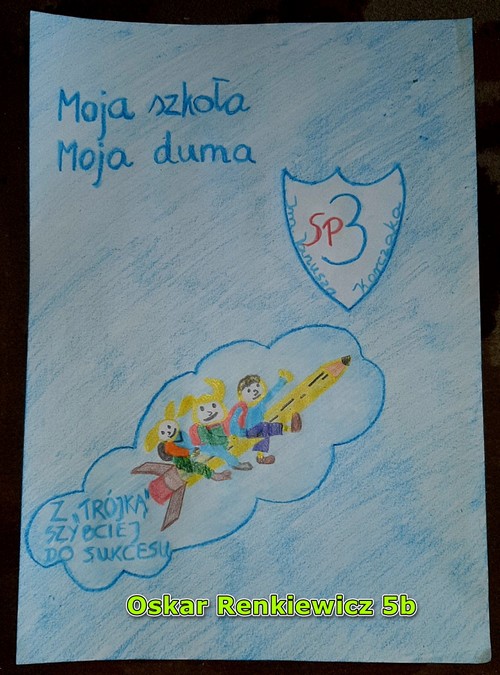 Moja szkoła
Moja duma
SP3
Im Janusza Korczaka
Z „TRÓJKĄ”
SZYBCIEJ
DO SUKCESU
Oskar Renkiewicz 5b